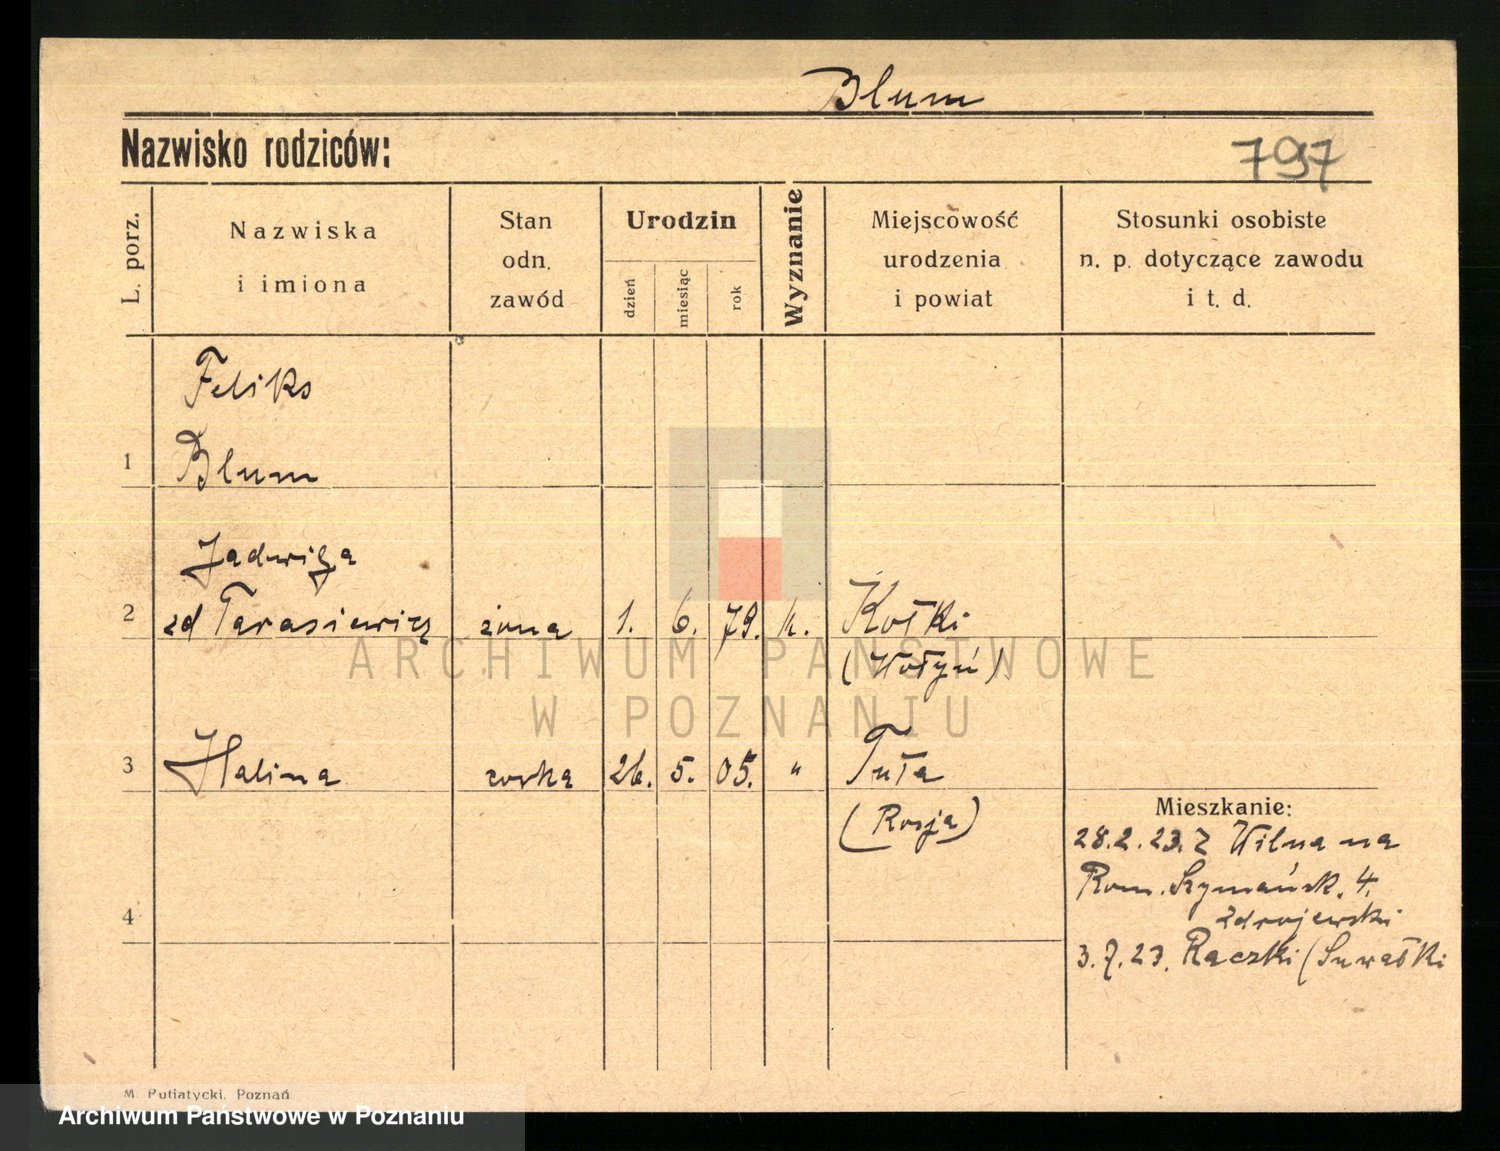 Blum
Nazwisko rodziców:
797
L. porz.
Nazwiska
i imiona
Stan
odn.
zawód
Urodzin
dzień
miesiąc
rok
Wyznanie
Miejscowość
urodzenia
i powiat
Stosunki osobiste
n. p. dotyczące zawodu
i t. d.
Feliks
1 Blum
Jadwiga
2 zd Tarasiewicz żona 1. 6. 79. k. Kołki
(Wołyń)
3 Halina córka 26. 5. 05. " Tuła
(Rosja)
Mieszkanie:
28.2.23. z Wilna na
Rom. Szymańsk. 4.
Zdrojewski
4
3.7.23. Raczki (Suwałki
ARCHIWUM PAŃSTWOWE
W POZNANIU
M. Putiatycki, Poznań
Archiwum Państwowe w Poznaniu